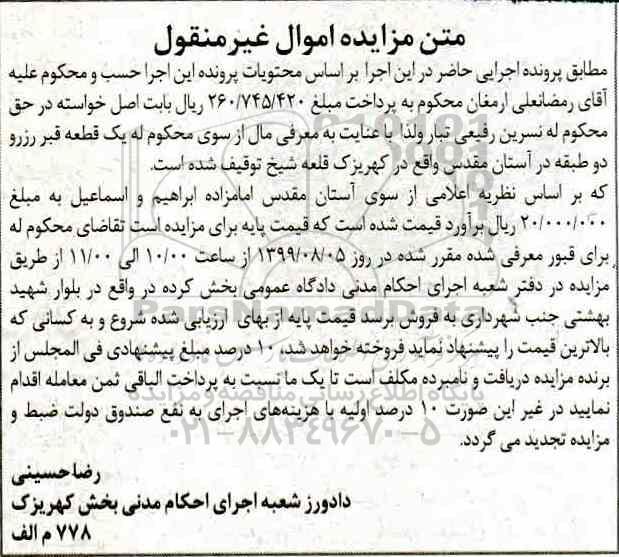 متن مزایده اموال غیرمنقول
مطابق پرونده اجرایی حاضر در این اجرا بر اساس محتویات پرونده این اجرا حسب و محکوم علیه
آقای رمضانعلی ارمغان محکوم به پرداخت مبلغ ۲۶۰/۷۴۵/۴۲۰ ریال بابت اصل خواسته در حق
محکوم له نسرین رفیعی تبار ولذا با عنایت به معرفی مال از سوی محکوم له یک قطعه قبر رزرو
دو طبقه در آستان مقدس واقع در کهریزک قلعه شیخ توقیف شده است.
که بر اساس نظریه اعلامی از سوی آستان مقدس امامزاده ابراهیم و اسماعیل به مبلغ
۲۰/۰۰۰/۰۰۰ ریال برآورد قیمت شده است که قیمت پایه برای مزایده است تقاضای محکوم له
برای قبور معرفی شده مقرر شده در روز ۱۳۹۹/۰۸/۰۵ از ساعت ۱۰/۰۰ الی ۱۱/۰۰ از طریق
مزایده در دفتر شعبه اجرای احکام مدنی دادگاه عمومی بخش کرده در واقع در بلوار شهید
بهشتی جنب شهرداری به فروش برسد قیمت پایه از بهای ارزیابی شده شروع و به کسانی که
بالاترین قیمت را پیشنهاد نماید فروخته خواهد شد، ۱۰ درصد مبلغ پیشنهادی فی المجلس از
برنده مزایده دریافت و نامبرده مکلف است تا یک ما نسبت به پرداخت الباقی ثمن معامله اقدام
نمایید در غیر این صورت ۱۰ درصد اولیه با هزینه‌های اجرای به نفع صندوق دولت ضبط و
مزایده تجدید می گردد.
رضا حسینی
دادورز شعبه اجرای احکام مدنی بخش کهریزک
۷۷۸ م الف
ParsNamadData
پایگاه اطلاع رسانی مناقصه و مزایده
۰۲۱-۸۸۳۴۹۶۷۰-۵